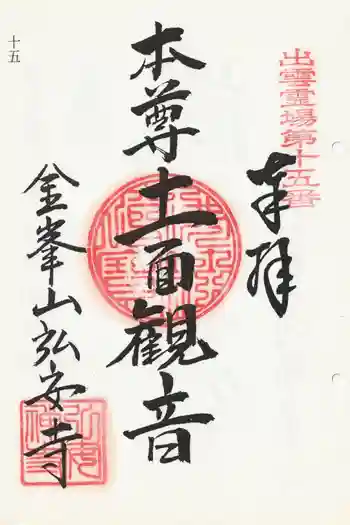 出雲霊場第十五番
奉拝
本尊十一面観音
金峯山弘安寺
十五